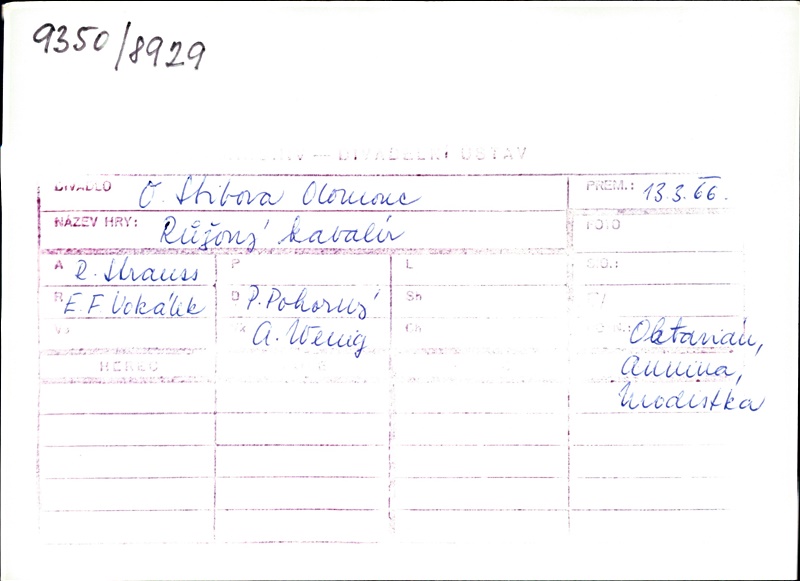 9350/8929
ARCHIV — DIVADELNÍ ÚSTAV
DIVADLO O. Stibora Olomouc PREM.: 13.3.66.
NÁZEV HRY: Růžový kavalír FOTO
A R. Strauss P L S.O.:
R E. F. Vokálek D P. Pokorný Sh
K A. Wenig Ch Oktavian,
HEREC Annina,
Modistka